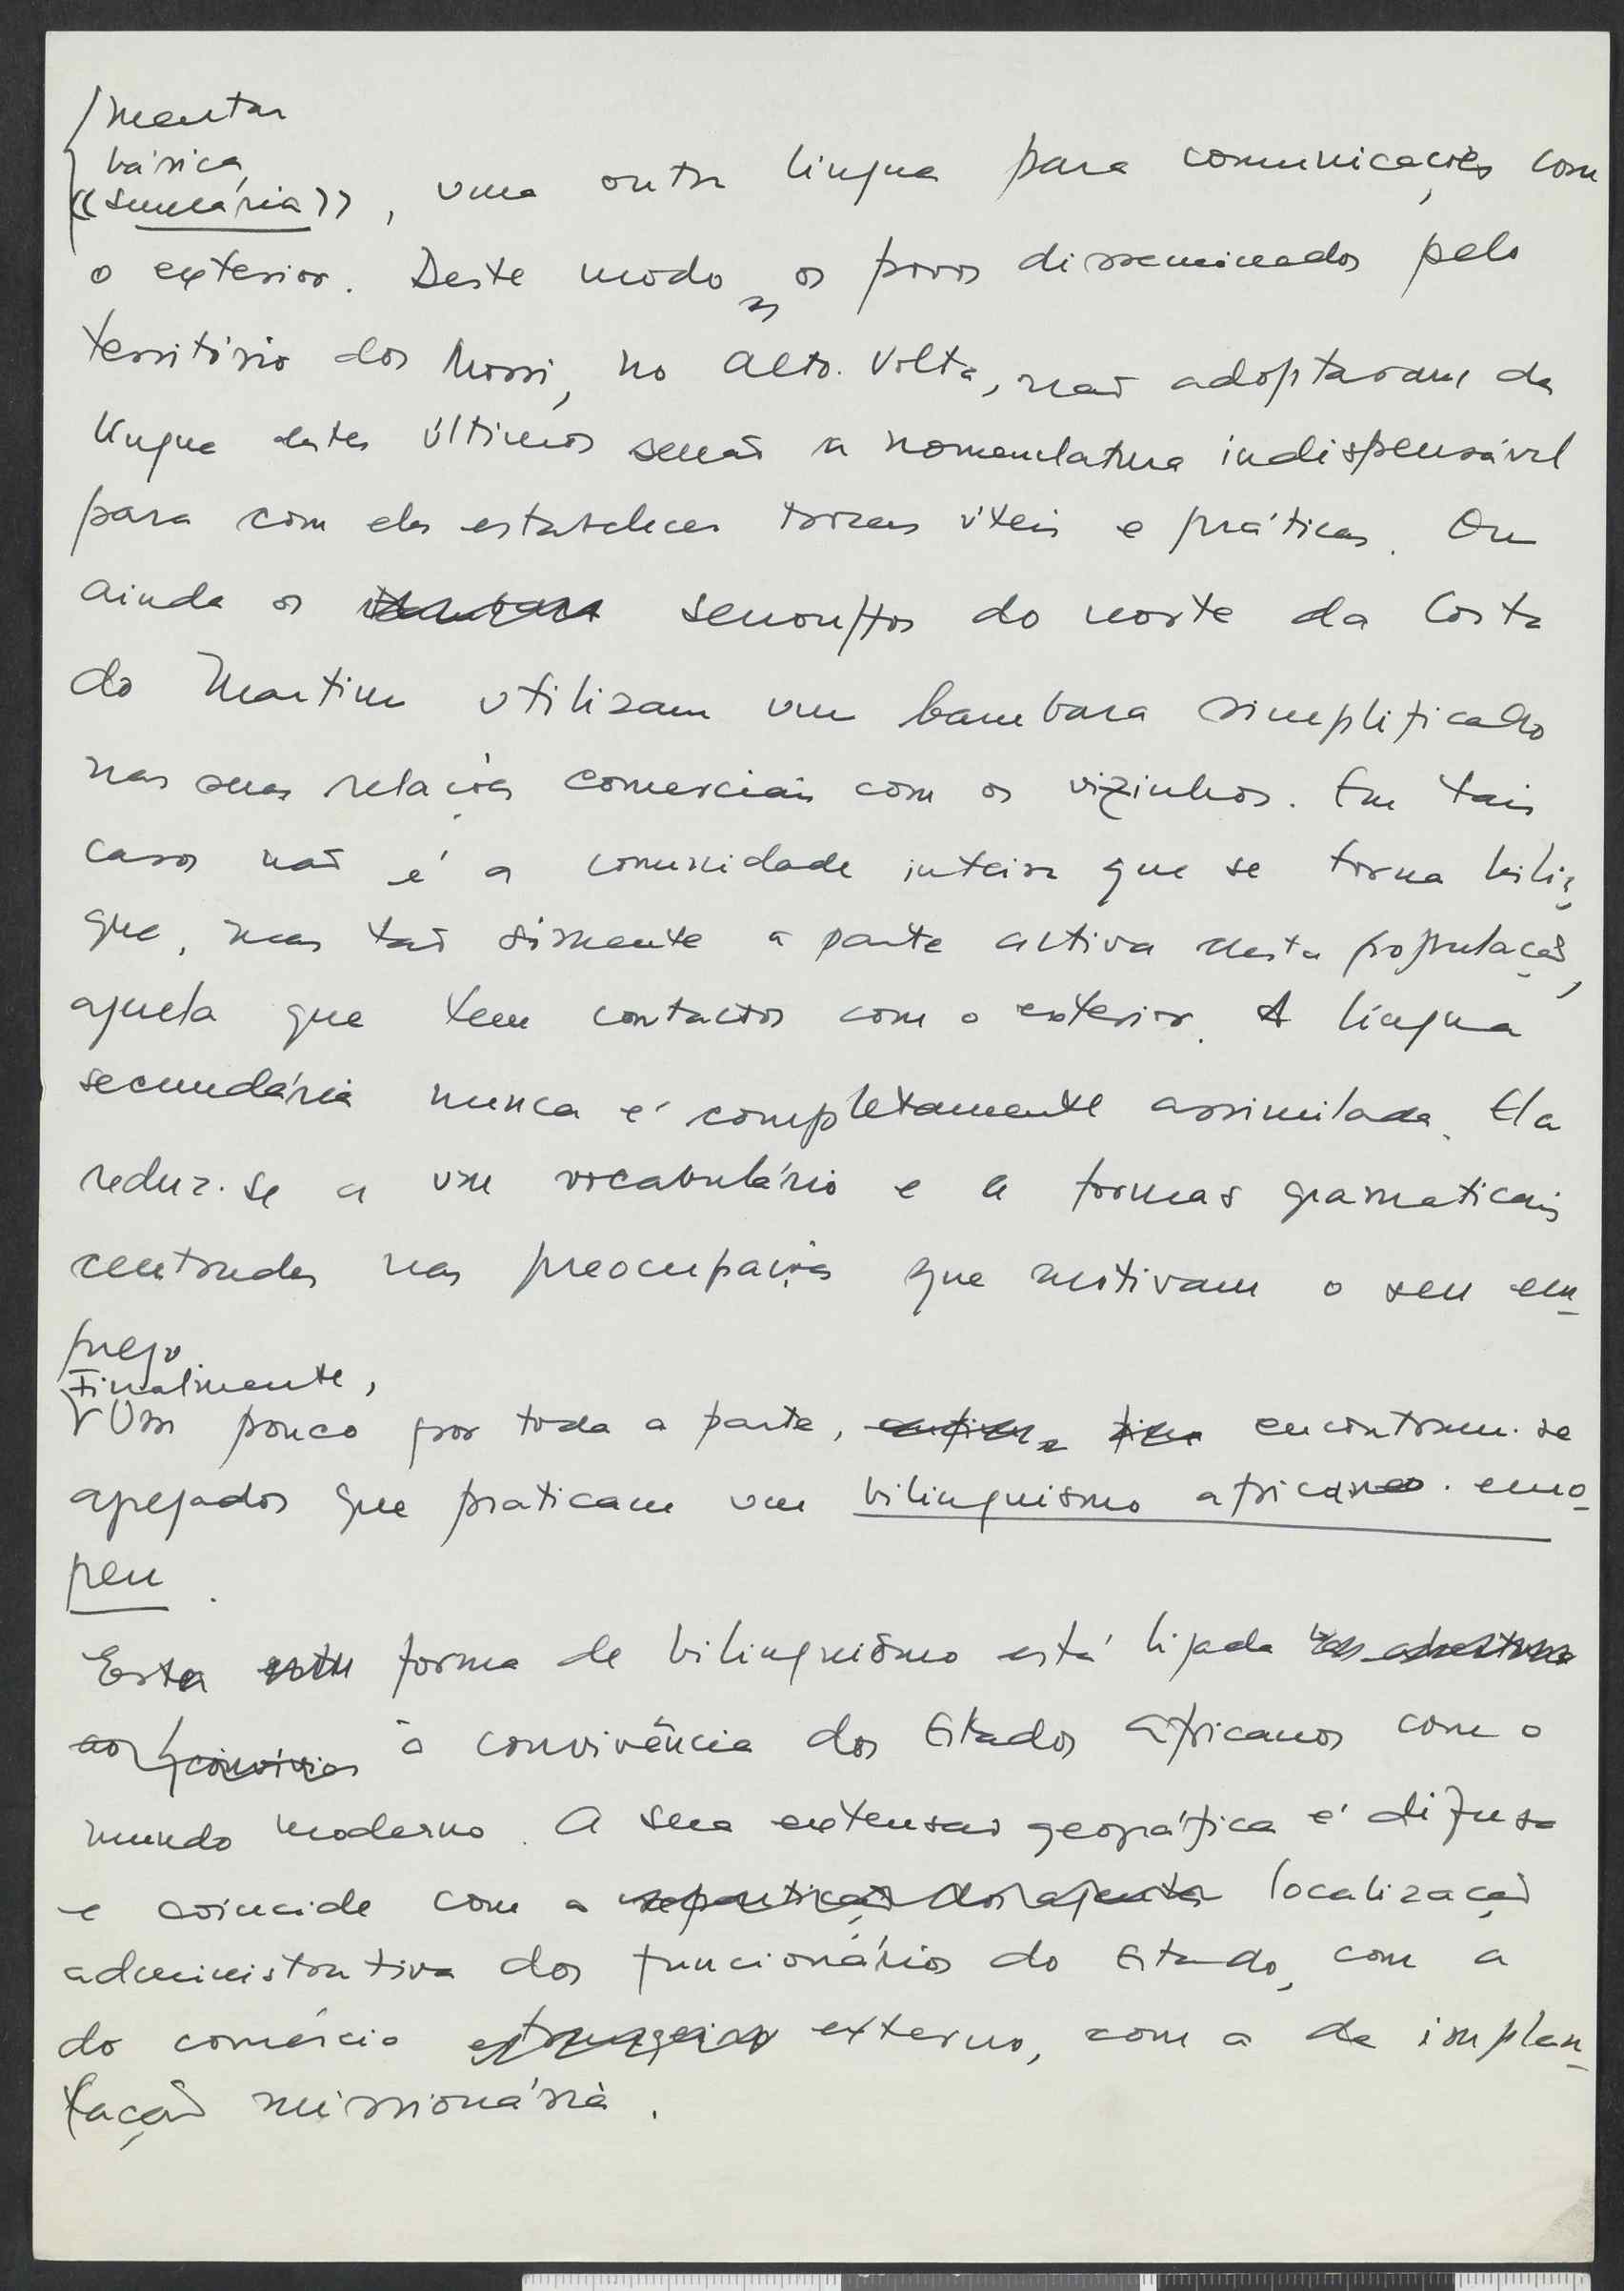 /mentar
básica
«sumária», uma outra lingua para comunicações com
o exterior. Deste modo, os povos disseminados pelo
território dos Mossi, no Alto-Volta, não adoptaram da
lingua destes últimos senão a nomenclatura indispensável
para com eles estabelecer trocas úteis e práticas. Ou
ainda os senoufos do norte da Costa
do Marfim utilizam um bambara simplificado
nas suas relações comerciais com os vizinhos. Em tais
casos não é a comunidade inteira que se torna bilin-
gue, mas tão sómente a parte activa desta população,
aquela que tem contactos com o exterior. A língua
secundária nunca é completamente assimilada. Ela
reduz-se a um vocabulário e a formas gramaticais
centradas nas preocupações que motivam o seu em-
prego
Finalmente,
Um pouco por toda a parte, encontram-se
agregados que praticam um bilinguismo africano-euro-
peu.
Esta forma de bilinguismo está ligada
aos convívios à convivência dos Estados africanos com o
mundo moderno. A sua extensão geográfica é difusa
e coincide com a repartição dos agentes localização
administrativa dos funcionários do Estado, com a
do comércio estrangeiro externo, com a da implan-
tação missionária.